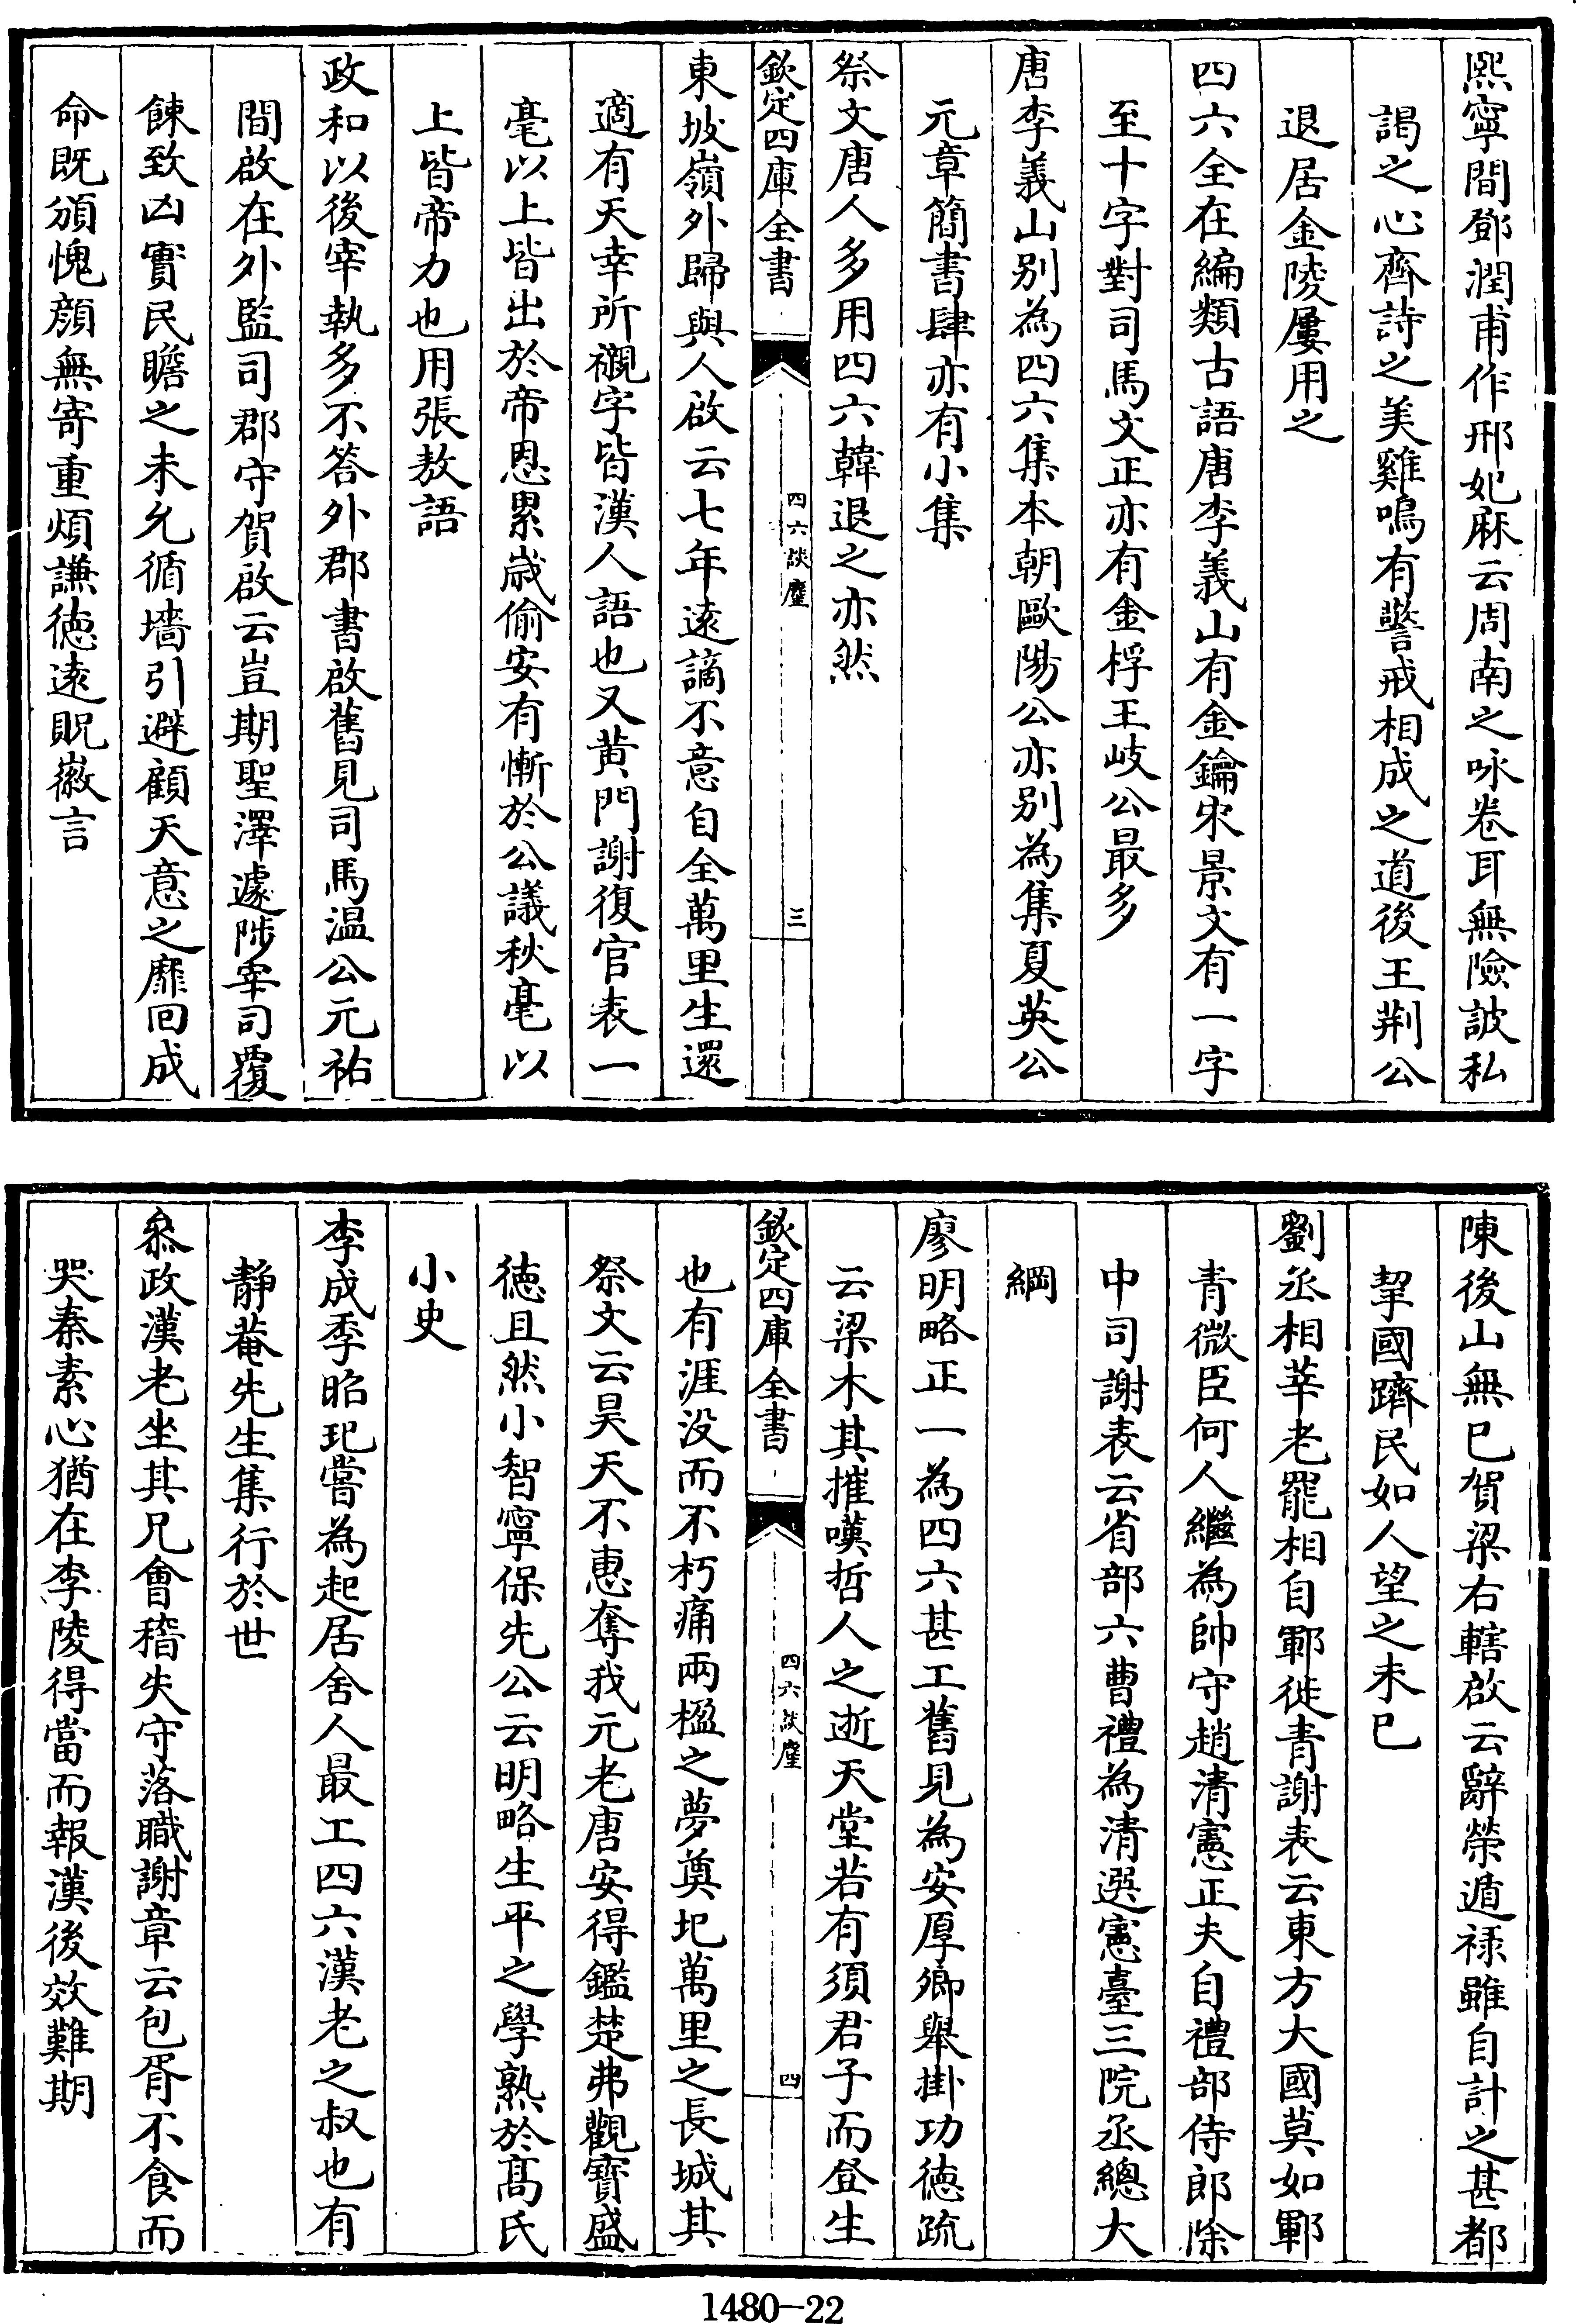 熙寧間鄧潤甫作邢妃麻云周南之咏卷耳無險詖私
謁之心齊詩之美雞鳴有警戒相成之道後王荆公
退居金陵屢用之
四六全在編類古語唐李義山有金鑰宋景文有一字
至十字對司馬文正亦有金桴王岐公最多
唐李義山别為四六集本朝歐陽公亦别為集夏英公
元章簡書肆亦有小集
祭文唐人多用四六韓退之亦然
欽定四庫全書
四六談麈
三
東坡嶺外歸與人啟云七年遠謫不意自全萬里生還
適有天幸所襯字皆漢人語也又黄門謝復官表一
毫以上皆出於帝恩累歲偷安有慚於公議秋毫以
上皆帝力也用張敖語
政和以後宰執多不答外郡書啟舊見司馬温公元祐
間啟在外監司郡守賀啟云豈期聖澤遽陟宰司覆
餗致凶實民瞻之未允循墻引避顧天意之靡回成
命既頒愧顔無寄重煩謙徳逺貺徽言
陳後山無已賀梁右轄啟云辭榮遁禄雖自計之甚都
挈國躋民如人望之未已
劉丞相莘老罷相自鄆徙青謝表云東方大國莫如鄆
青微臣何人繼為帥守趙清憲正夫自禮部侍郎除
中司謝表云省部六曹禮為清選憲臺三院丞總大
綱
廖明略正一為四六甚工舊見為安厚卿舉掛功徳疏
云梁木其摧嘆哲人之逝天堂若有須君子而登生
也有涯没而不朽痛兩楹之夢奠圯萬里之長城其
欽定四庫全書
四六談麈
四
祭文云昊天不惠奪我元老唐安得鑑楚弗觀寳盛
徳且然小智寧保先公云明略生平之學熟於髙氏
小史
李成季昭玘嘗為起居舍人最工四六漢老之叔也有
静菴先生集行於世
叅政漢老坐其兄會稽失守落職謝章云包胥不食而
哭秦素心猶在李陵得當而報漢後效難期
1480—22